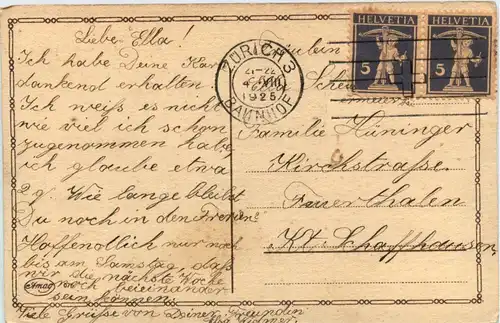 Liebe Ella!
Ich habe Deine Kar
dankend erhalten.
Ich weiss es nicht
wie viel ich schon
zugenommen habe,
ich glaube etwa
2 g. Wie lange bleibst
Du noch in den Ferien?
Hoffenollich nur noch
bis am Samstag, daß
wir die nächste Woche
noch beieinander
sein können.
Viele Grüsse von Deiner Freundin
HELVETIA
5
HELVETIA
5
ZÜRICH 3
21-22
1925
BAHNHOF
Fräulein
Familie Hüninger
Kirchstraße
Feuerthalen
Kt. Schaffhausen